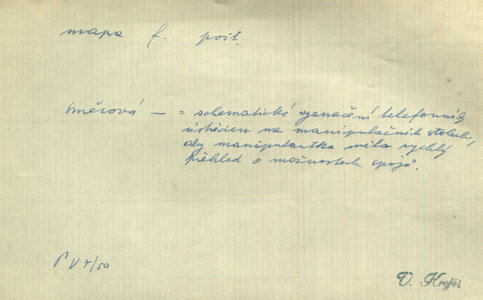 mapa f. pošt.
směrová — = schematické vyznačení telefonních
ústředen na manipulačních stolech,
aby manipulantka měla rychlý
přehled o možnostech spojů.